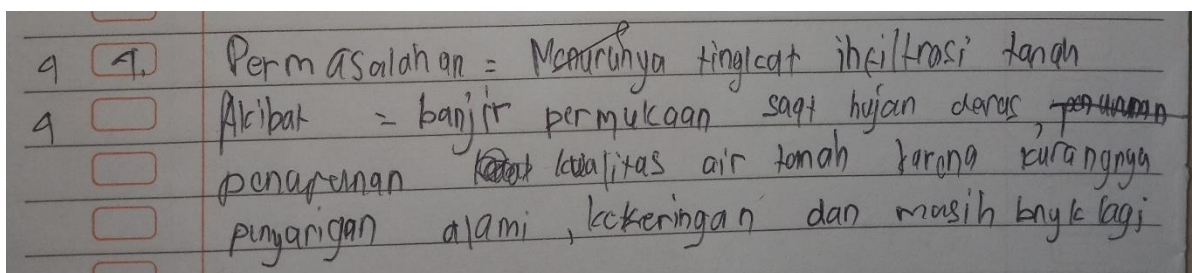 9 9. Permasalahan = Menurunya tinglcat infiltrasi tanah
9 Akibat = banjir permukaan saat hujan deras,
penurunan kualitas air tanah karena kurangnya
penyarigan alami, kekeringan dan masih bnyk lagi